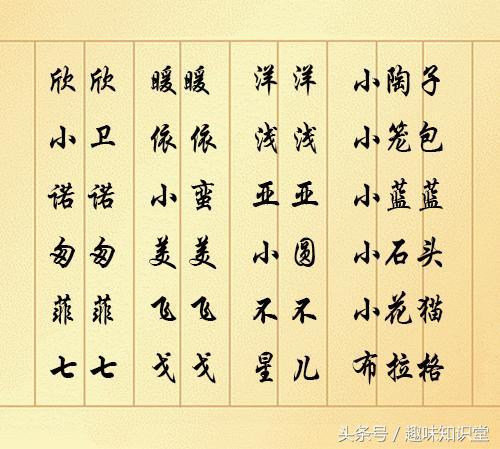 欣欣 暖暖 洋洋 小陶子
小卫 依依 浅浅 小笼包
诺诺 小蛮 亚亚 小蓝蓝
匆匆 美美 小圆 小石头
菲菲 飞飞 不不 小花猫
七七 戈戈 星儿 布拉格
头条号 / 趣味知识堂